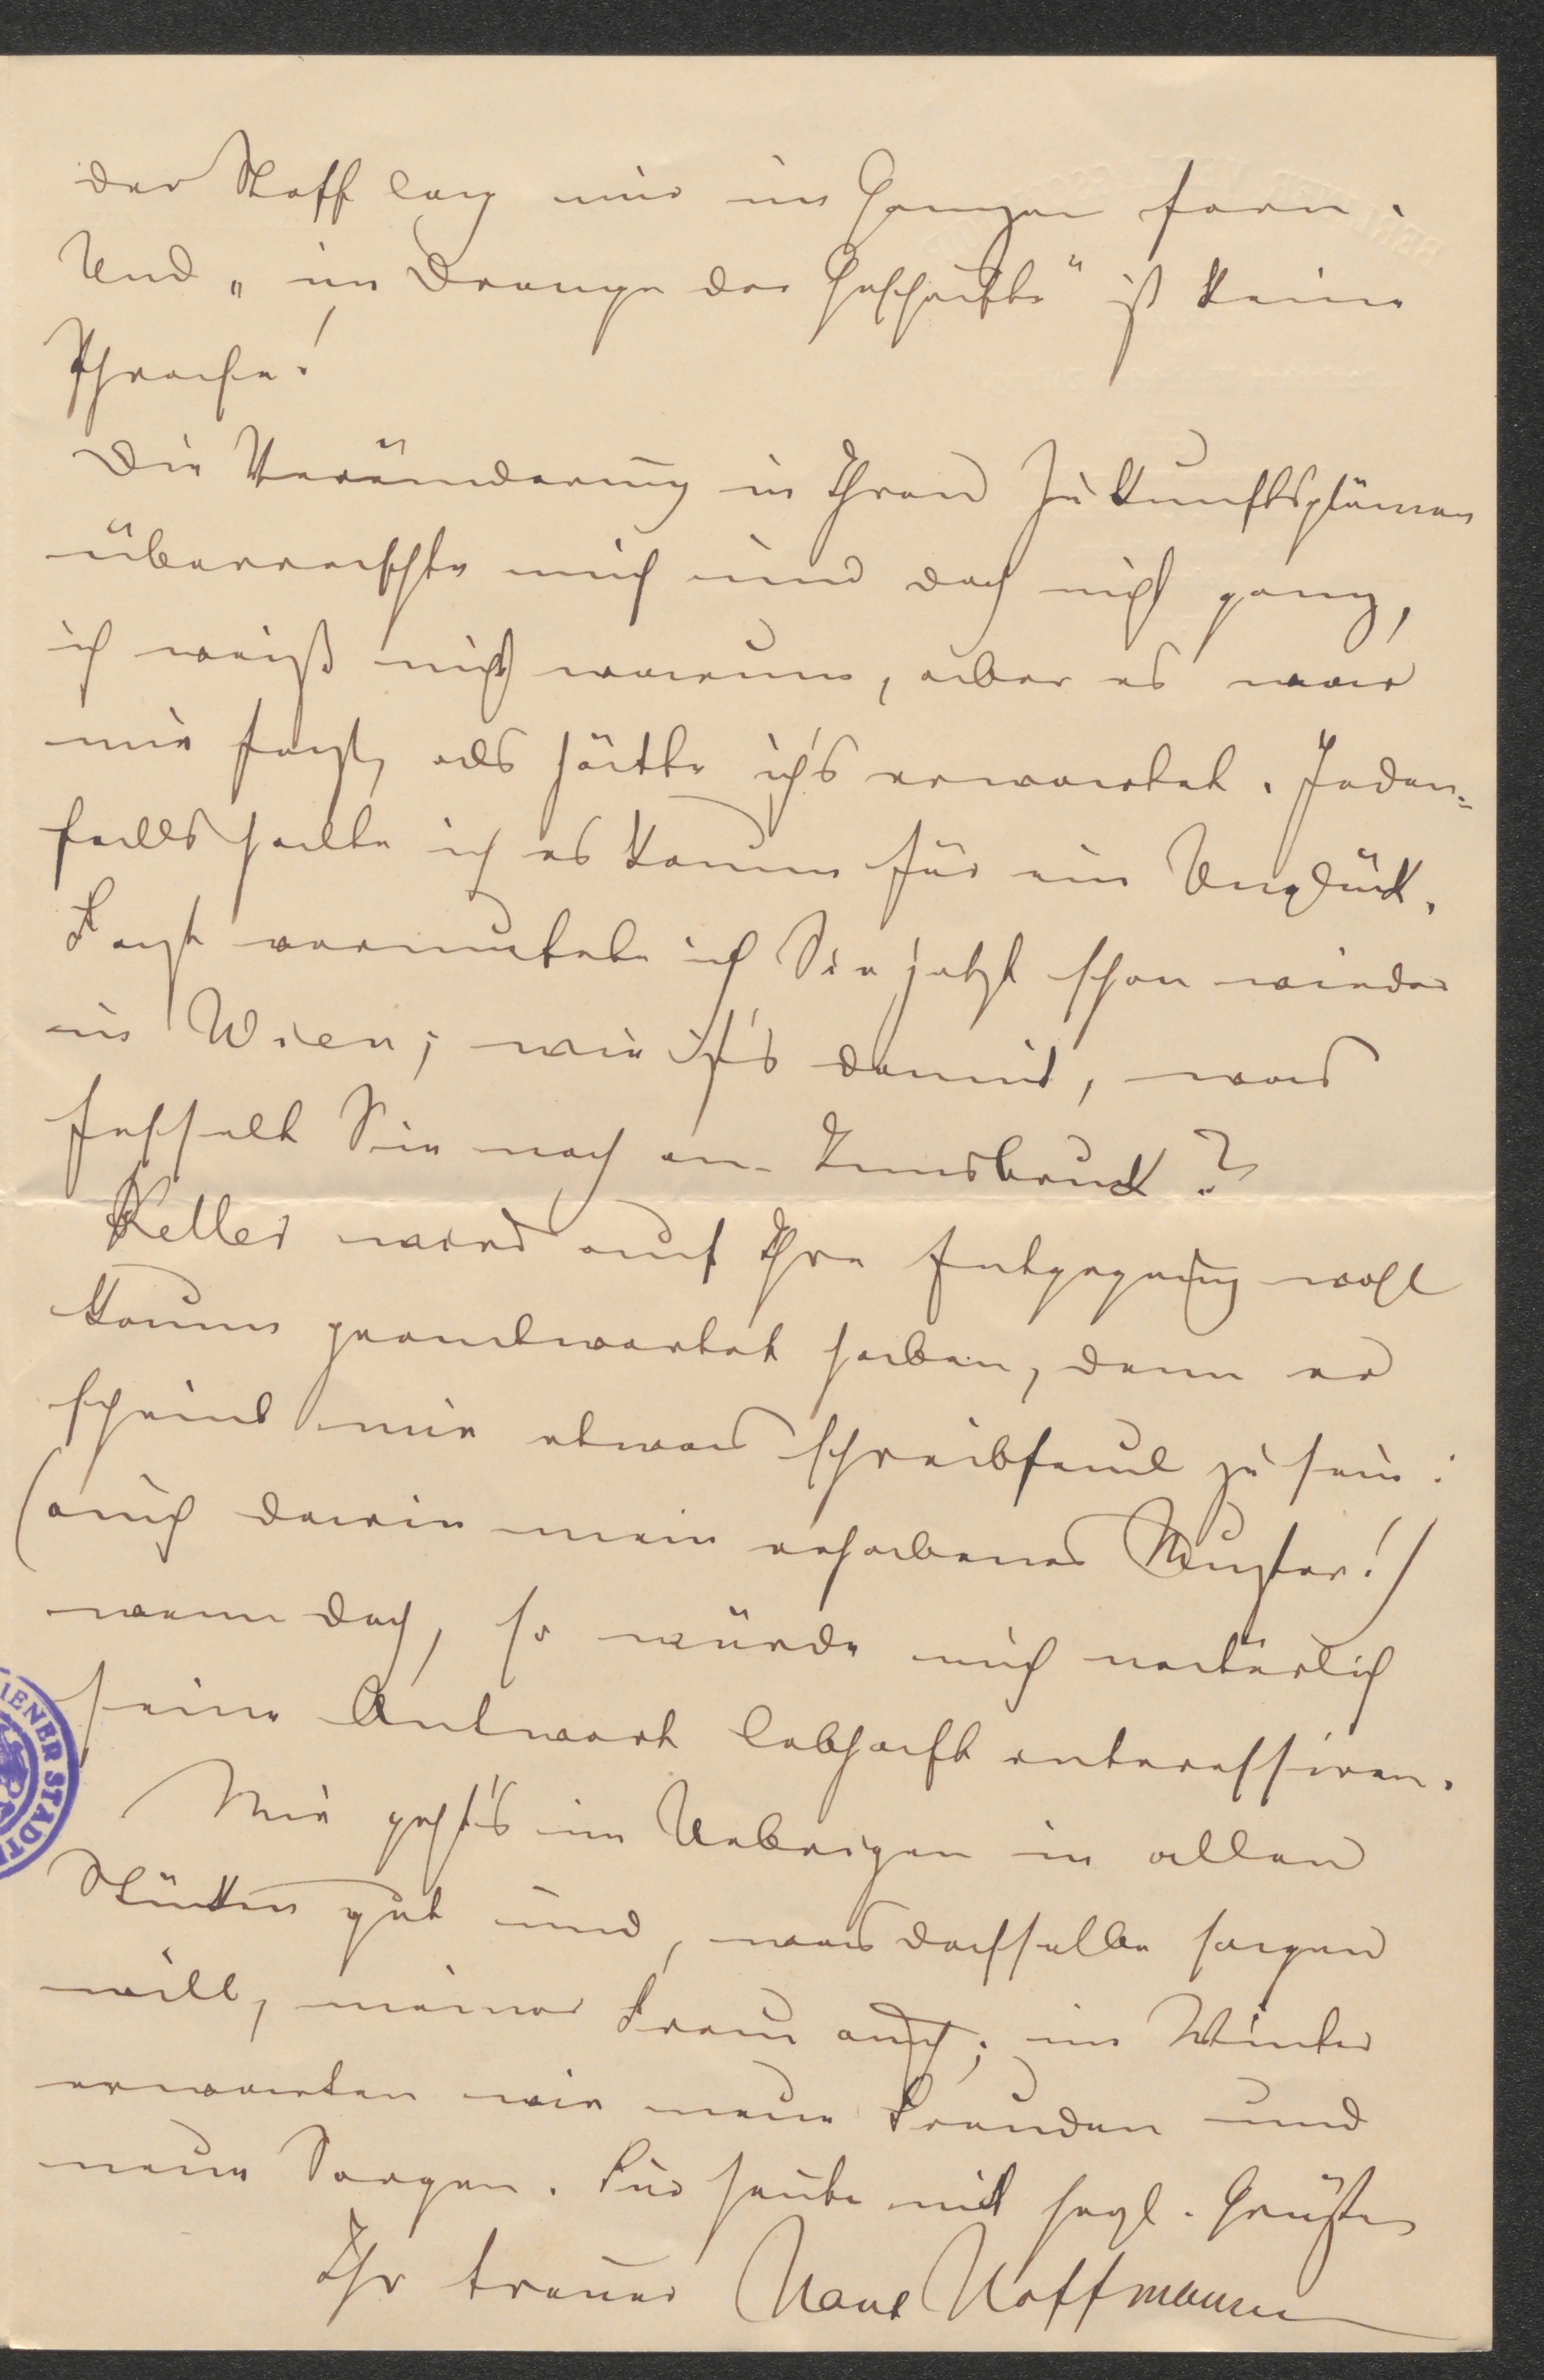 der Stoff lag mir im Ganzen fern.
Und „im Drange der Geschäfte" ist keine
Phrase!
Die Veränderung in Ihren Zukunftsplänen
überraschte mich und doch nicht ganz,
ich weiß nicht warum, aber es war
mir fast, als hätte ich's erwartet. Jeden=
falls halte ich es kaum für ein Unglück.
Fast vermutete ich Sie jetzt schon wieder
in Wien; wie ist's damit, was
fesselt Sie noch an Innsbruck?
Keller wird auf Ihre Entgegnung wohl
kaum geantwortet haben, denn er
scheint mir etwas schreibfaul zu sein:
(auch darin mein erhabenes Muster!)
wenn doch, so würde mich natürlich
seine Antwort lebhaft interessiren.
Mir geht's im Uebrigen in allen
Stücken gut und, was dasselbe sagen
will, meiner Frau auch; im Winter
erwarten wir neue Freuden und
neue Sorgen. Für heute mit hgl. Grüßen
Ihr treuer Hans Hoffmann
IENER STADT